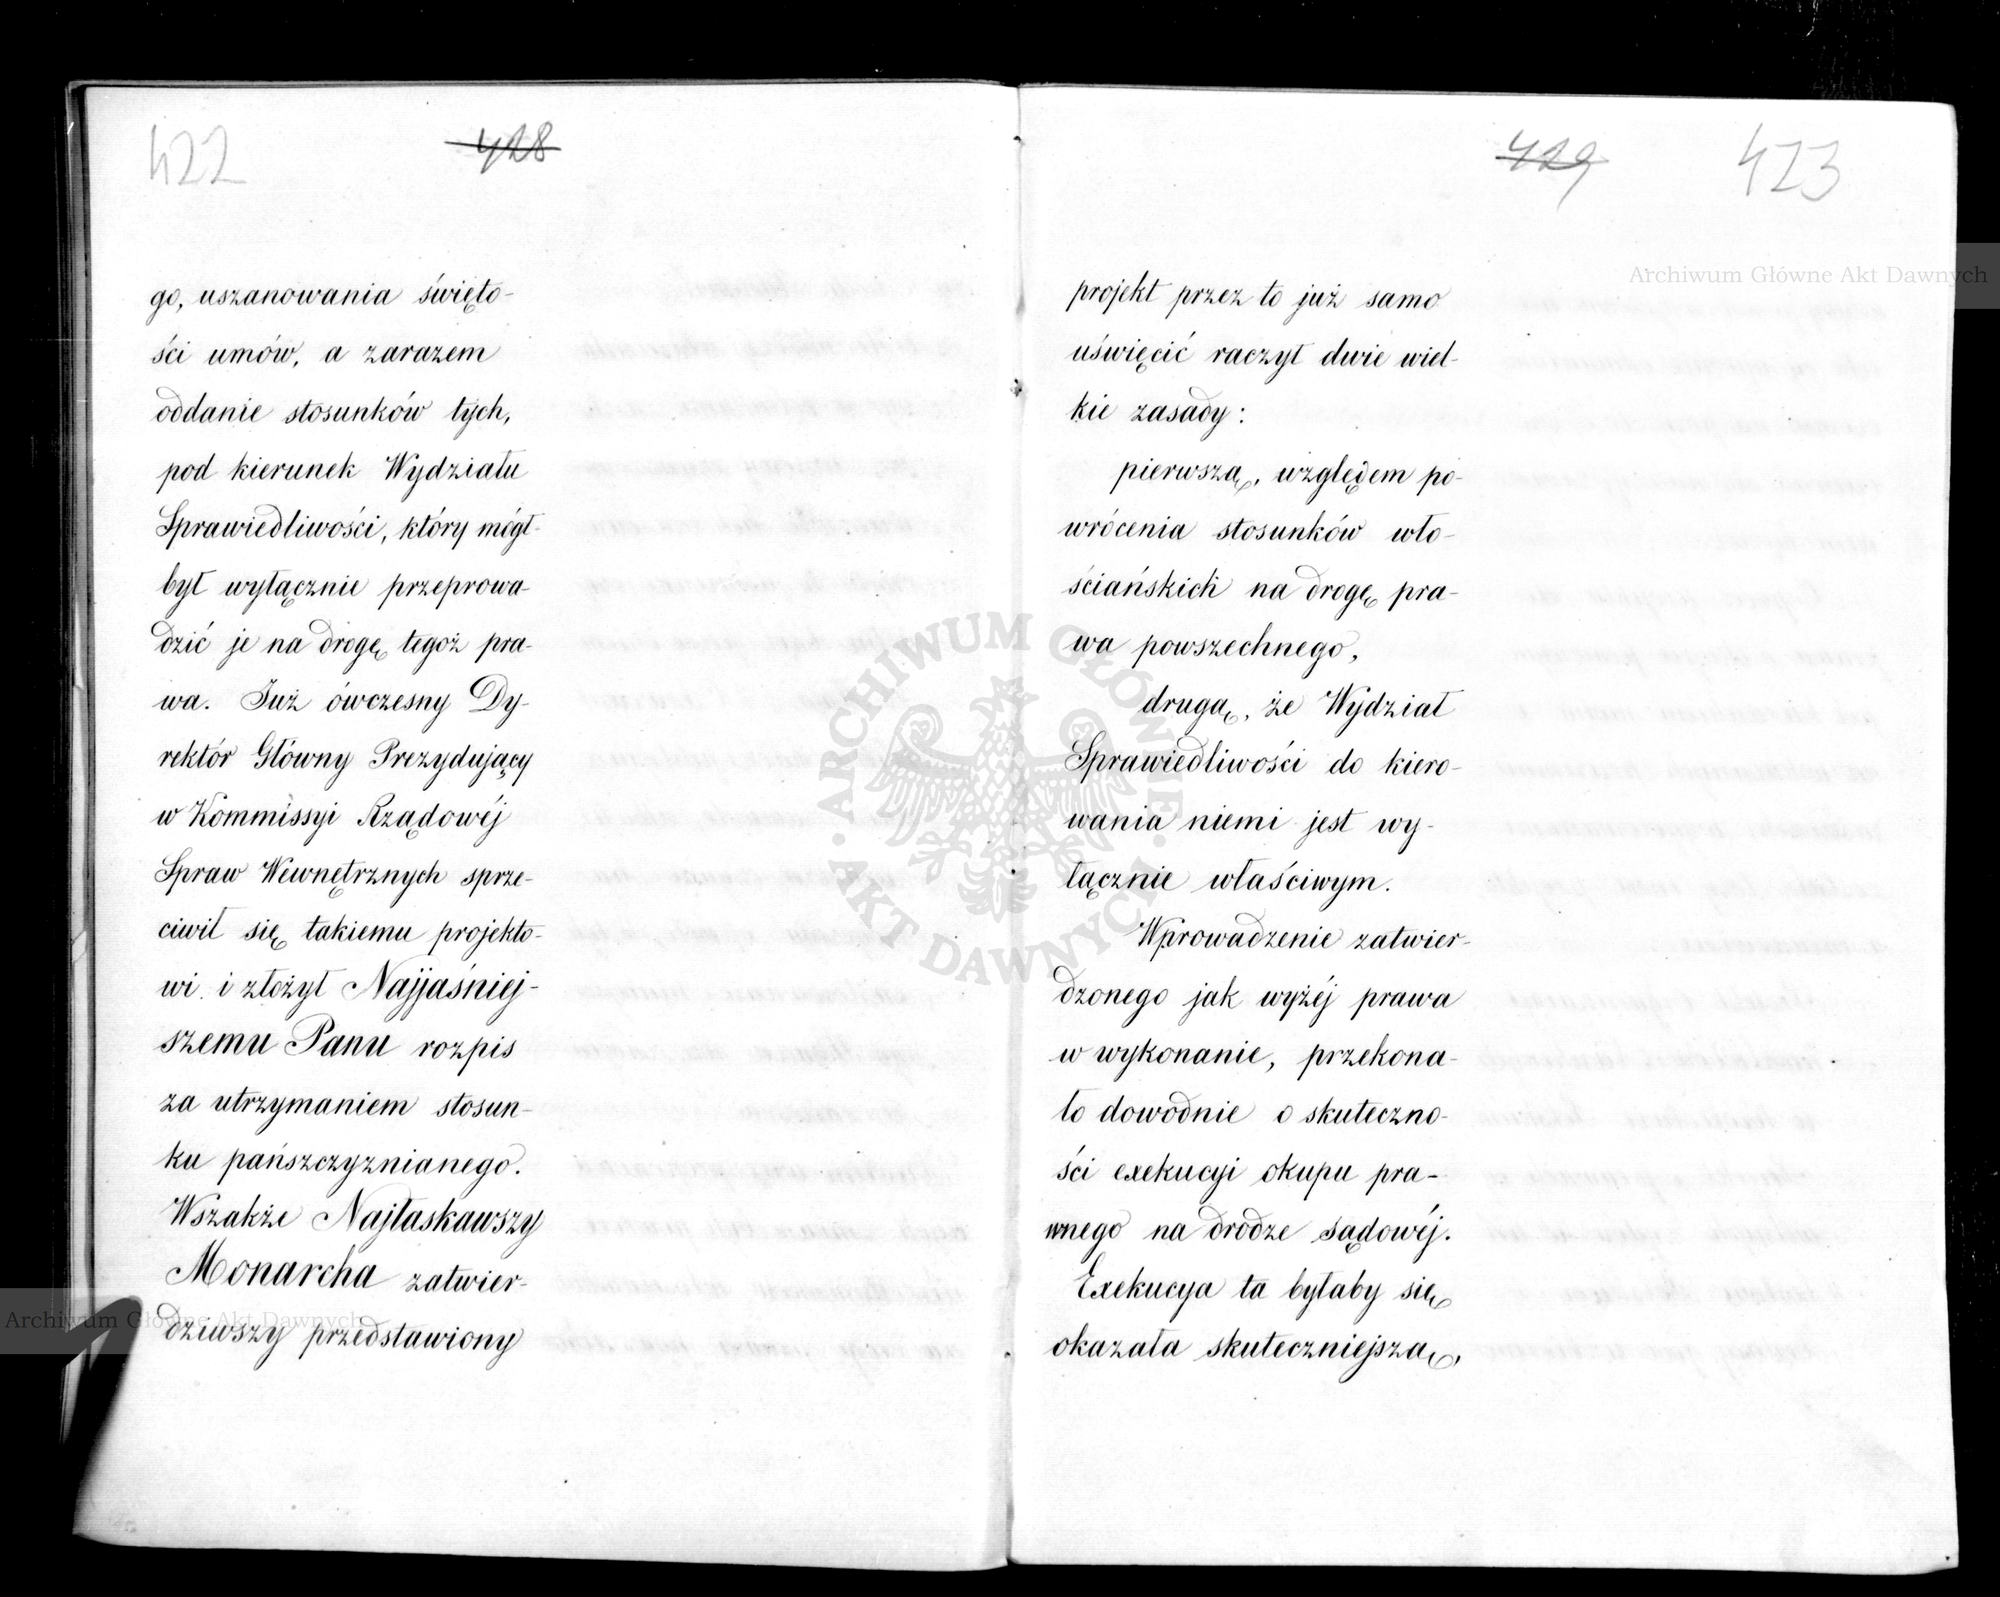 422
428
go, uszanowania święto-
ści umów, a zarazem
oddanie stosunków tych,
pod kierunek Wydziału
Sprawiedliwości, który mógł-
był wyłącznie przeprowa-
dzić je na drogę tegoż pra-
wa. Już ówczesny Dy-
rektór Główny Prezydujący
w Kommissyi Rządowéj
Spraw Wewnętrznych sprze-
ciwił się takiemu projekto-
wi i złożył Najjaśniej-
szemu Panu rozpis
za utrzymaniem stosun-
ku pańszczyznianego.
Wszakże Najłaskawszy
Monarcha zatwier-
dziwszy przedstawiony
429
423
projekt przez to już samo
uświęcić raczył dwie wiel-
kie zasady:
pierwszą, względem po-
wrócenia stosunków wło-
ściańskich na drogę pra-
wa powszechnego,
drugą, że Wydział
Sprawiedliwości do kiero-
wania niemi jest wy-
łącznie właściwym.
Wprowadzenie zatwier-
dzonego jak wyżéj prawa
w wykonanie, przekona-
ło dowodnie o skuteczno-
ści exekucyi okupu pra-
wnego na drodze sądowéj.
Exekucya ta byłaby się
okazała skuteczniejszą,
Archiwum Główne Akt Dawnych
Archiwum Główne Akt Dawnych
ARCHIWUM GŁÓWNE · AKT DAWNYCH ·